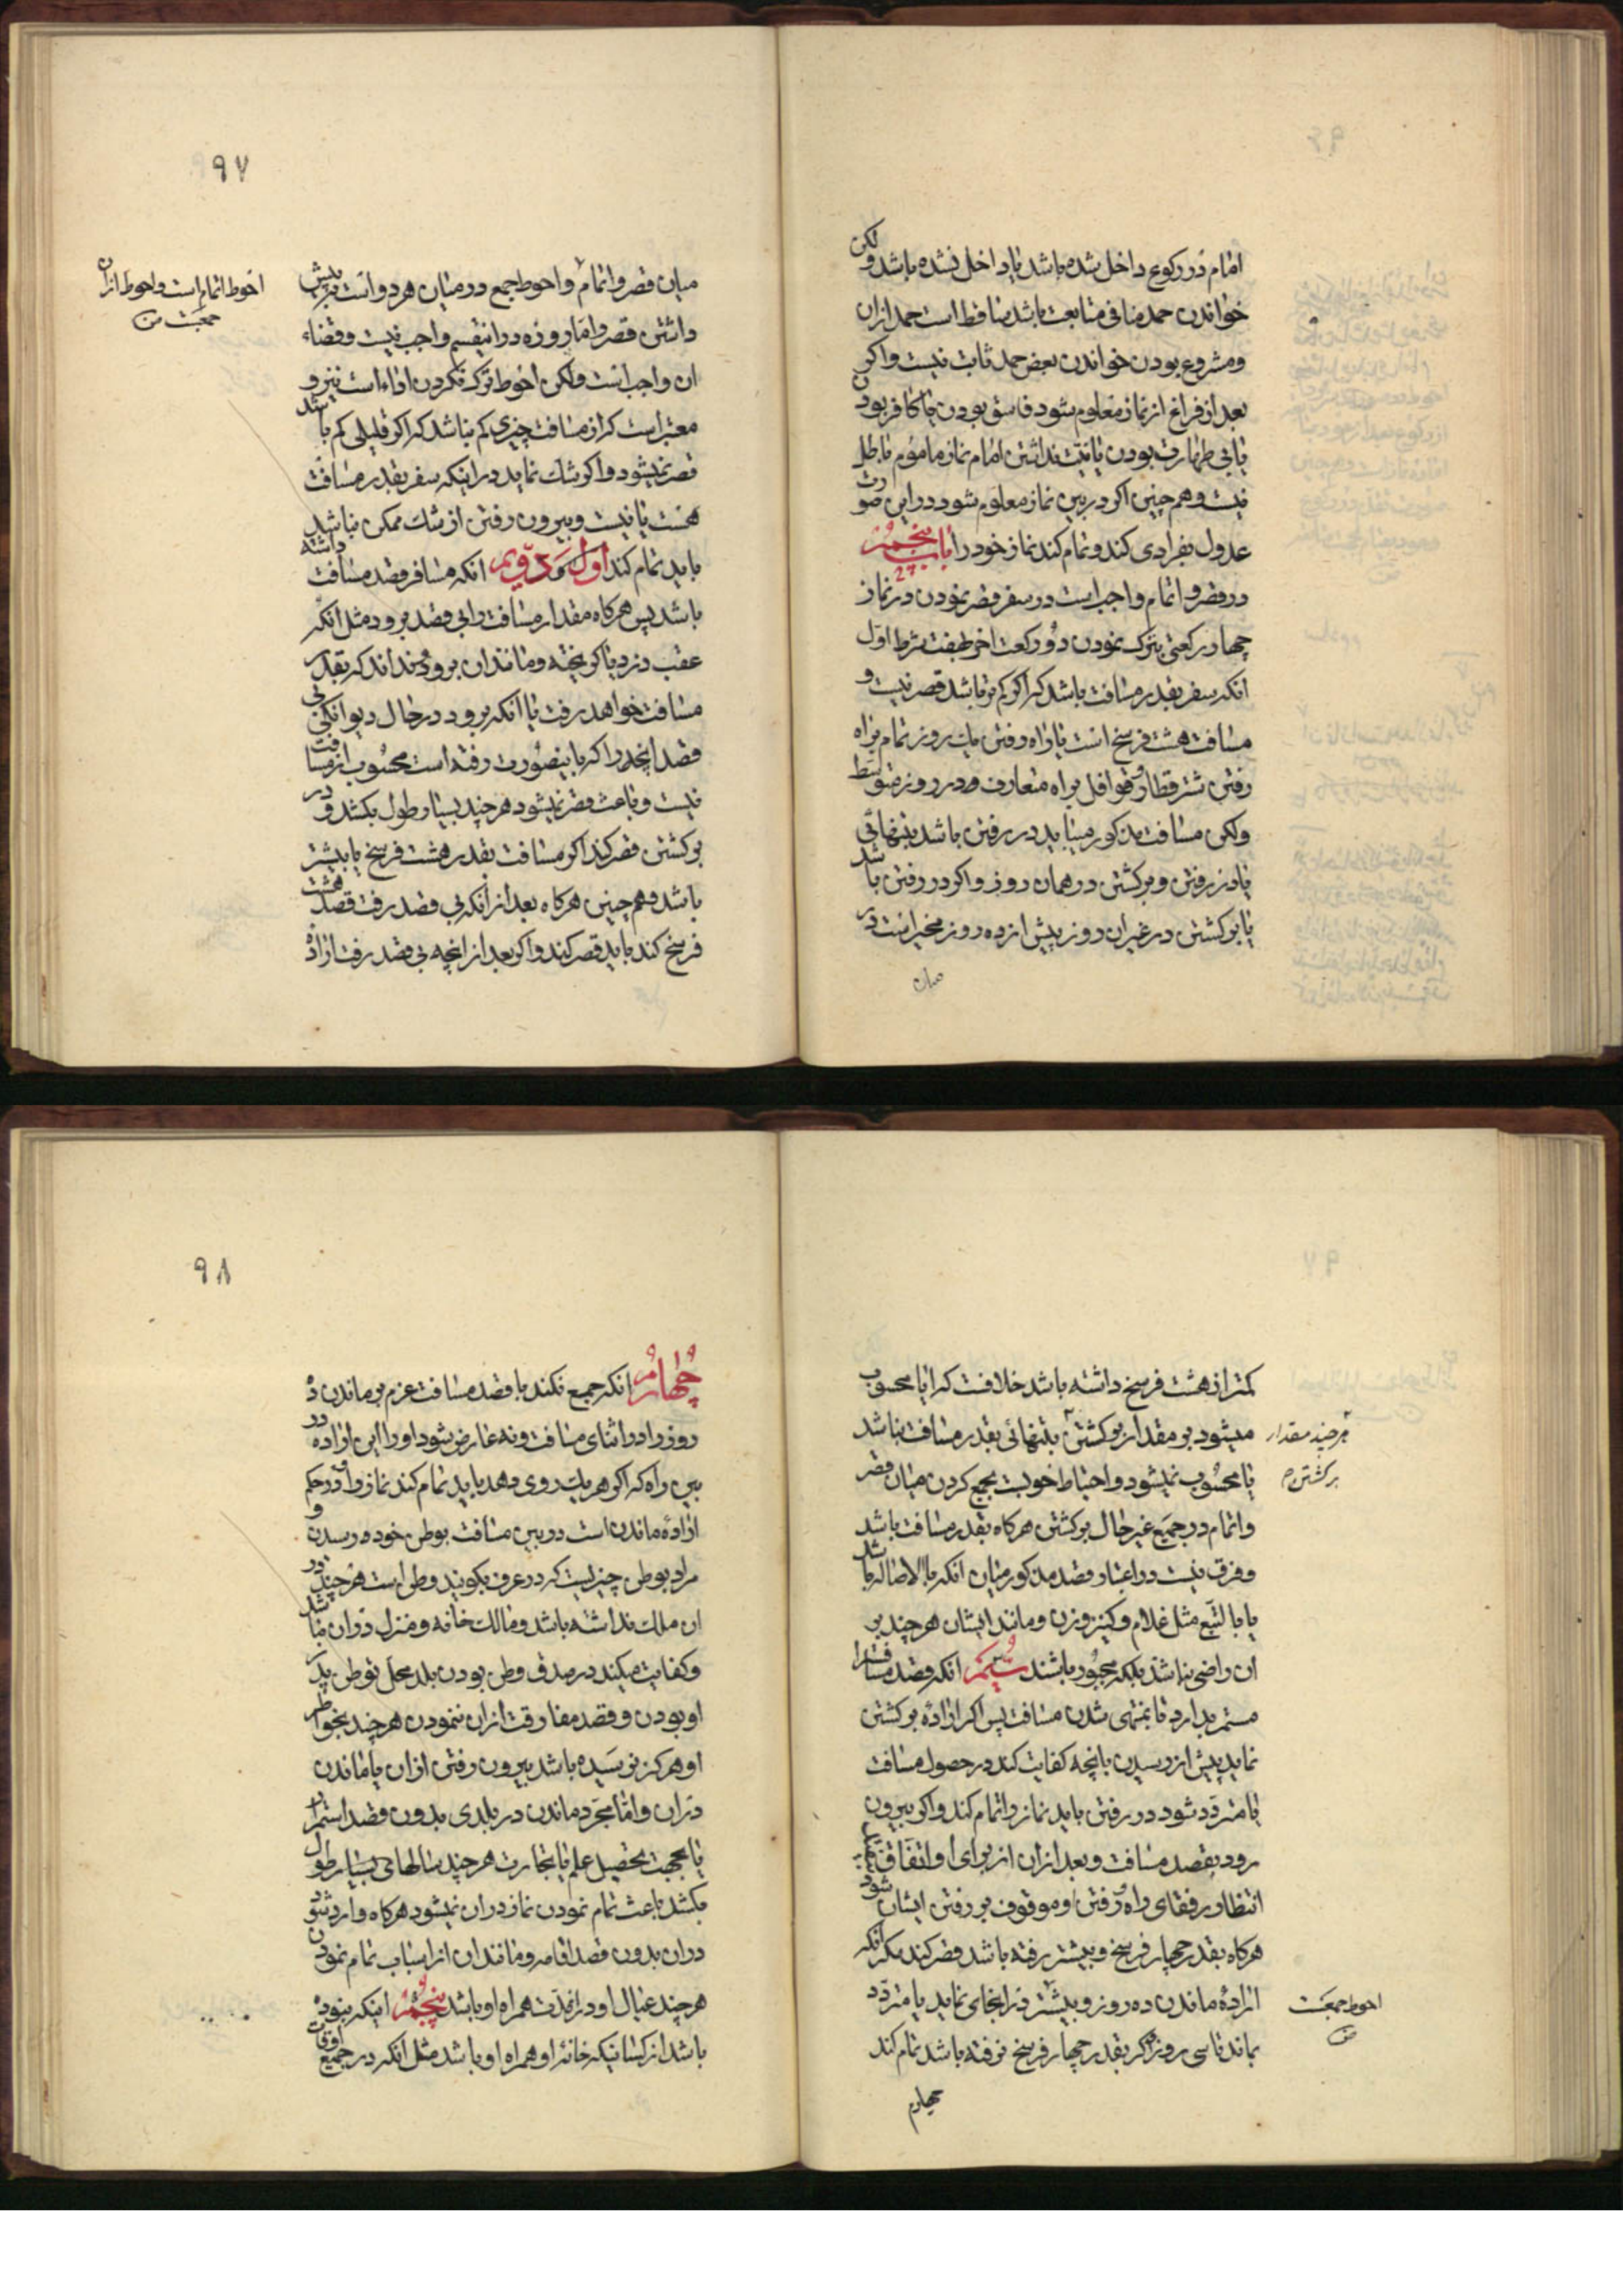 امام در رکوع داخل شده باشد یا داخل نشده باشد و لکن
خواندن حمد منافی متابعت باشد ساقط است حمد ازان
و مشروع بودن خواندن بعض حمد ثابت نیست و اکر
بعد از فراغ از نماز معلوم شود فاسق بودن یا کافر بودن
یا بی طهارت بودن یا نیت نداشتن امام نماز ماموم باطل
نیست و هم چنین اکر در بین نماز معلوم شود در این صورت
عدول بفرادی کند و تمام کند نماز خود را باب پنجم
27
در قصر و اتمام واجب است در سفر قصر نمودن در نماز
چهار رکعتی بترک نمودن دو رکعت اخر بهفت شرط اول
انکه سفر بقدر مسافت باشد که اکر کم تر باشد قصر نیست و
مسافت هشت فرسخ است یا راه رفتن یک روز تمام براه
رفتن شتر قطار و قوافل براه متعارف و در روز متوسط
ولکن مسافت مذکور میباید در رفتن باشد بتنهائی
یا در رفتن و برکشتن در همان روز و اکر در رفتن باشد
یا برکشتن در غیر ان روز پیش از ده روز مخیر است در
میان
۹۷
میان قصر و اتمام و احوط جمع در میان هر دو است بر پیش
داشتن قصر و اما روزه در اینقسم واجب نیست و قضاء
ان واجب است ولکن احوط ترک نکردن اداء است نیز و
معتبر است که از مسافت چیزی کم نباشد که اکر قلیلی کم باشد
قصر نمیشود و اکر شک نماید در اینکه سفر بقدر مسافت
هست یا نیست و بیرون رفتن از شک ممکن نباشد
باید تمام کند اول و دویم انکه مسافر قصد مسافت داشته
باشد پس هرکاه مقدار مسافت را بی قصد برود مثل انکه
عقب دزد یا کریخته و مانند ان برود و نداند که بقدر
مسافت خواهد رفت یا انکه برود در حال دیوانکی بی
قصد انچه را که باینصورت رفته است محسوب از مسافت
نیست و باعث قصر نمیشود هرچند بسیار طول بکشد و در
برکشتن قصر کند اکر مسافت بقدر هشت فرسخ یا بیشتر
باشد و هم چنین هرکاه بعد از انکه بی قصد رفت قصد هشت
فرسخ کند باید قصر کند و اکر بعد از انچه بی قصد رفت اراده
احوط اتمام است و احوط ازان
جمعست
کمتر از هشت فرسخ داشته باشد خلافست که ایا محسوب
میشود بر مقدار برکشتن بتنهائی بقدر مسافت نباشد
یا محسوب نمیشود و احتیاط خوبست بجمع کردن میان قصر
و اتمام در جمیع غیر حال برکشتن هرکاه بقدر مسافت باشد
و فرق نیست در اعتبار قصد مذکور میان انکه بالاصاله باشد
یا بالتبع مثل غلام و کنیز و زن و مانند ایشان هرچند بر
ان راضی نباشد بلکه مجبور باشند سیم انکه قصد مسافت را
مستمر بدارد تا بمنتهی شدن مسافت پس اکر اراده برکشتن
نماید پیش از رسیدن بانچه کفایت کند در حصول مسافت
یا متردد شود در رفتن باید نماز را تمام کند و اکر بیرون
رود بقصد مسافت و بعد ازان از برای او اتفاق
انتظار رفقای راه رفتن و موقوف بر رفتن ایشان شود
هرکاه بقدر چهار فرسخ و بیشتر رفته باشد قصر کند مکر انکه
اراده ماندن ده روز و بیشتر در انجای نماید یا متردد
بماند تا سی روز و اکر بقدر چهار فرسخ نرفته باشد تمام کند
چهارم
هر چند مقدار
برکشتن
احوط جمعست
۹۸
چهارم انکه جمع نکند با قصد مسافت عزم بر ماندن ده
روز را در اثنای مسافت و نه عارض شود او را این اراده در
بین راه که اکر هر یک روی دهد باید تمام کند نماز را و در حکم
اراده ماندن است در بین مسافت بوطن خود رسیدن و
مراد بوطن چیزیست که در عرف بکویند وطن است هرچند در
ان ملک نداشته باشد و مالک خانه و منزل دران نباشد
و کفایت میکند در صدق وطن بودن بلد محل توطن پدر
او بودن و قصد مفارقت ازان ننمودن هرچند بخواطر
او هرکز نرسیده باشد بیرون رفتن ازان یا ماندن
دران و اما مجرد ماندن در بلدی بدون قصد استمرار
یا بجهت تحصیل علم یا تجارت هرچند سالهای بسیار طول
بکشد باعث تمام نمودن نماز دران نمیشود هرکاه وارد شود
دران بدون قصد اقامه و مانند ان از اسباب تمام نمودن
هرچند عیال او دران مدت همراه او باشد پنجم اینکه نبوده
باشد از کسانیکه خانه او همراه او باشد مثل انکه در جمیع اوقات